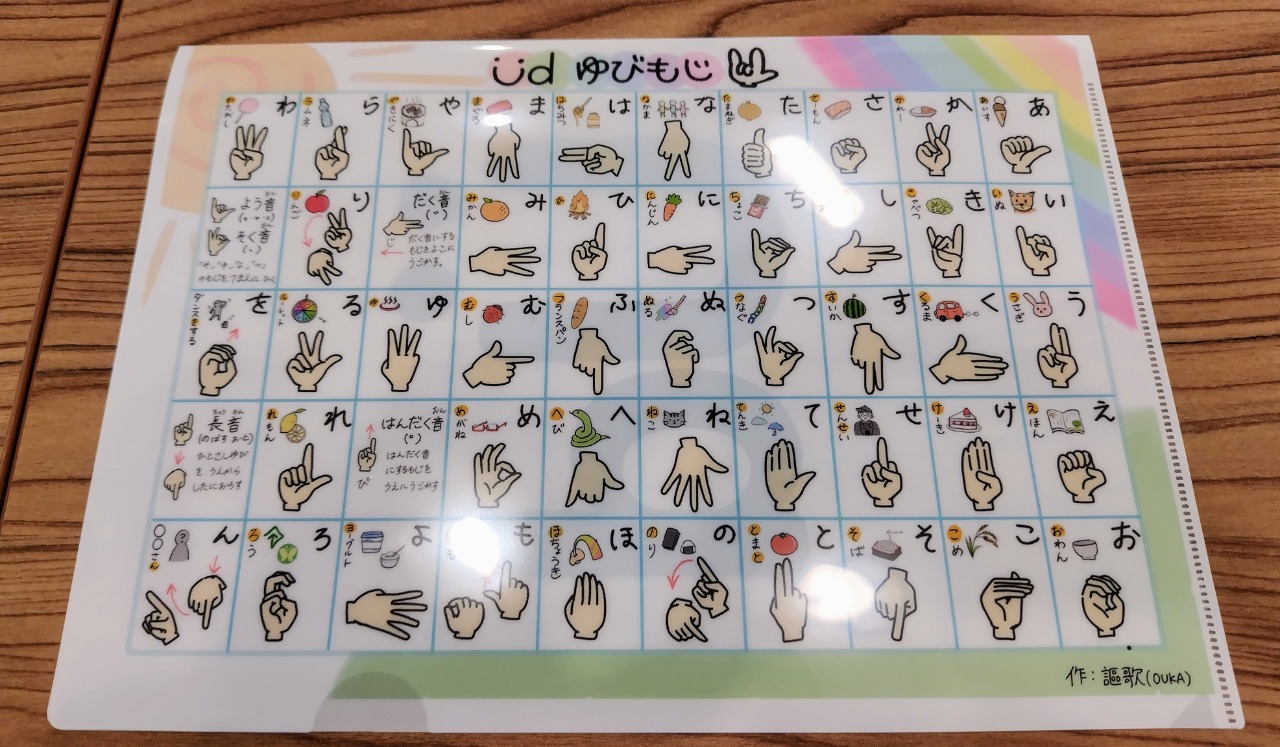 Üd ゆびもじ
あ
あいす
い
いぬ
う
うさぎ
え
えほん
お
おわん
か
かれー
き
きゃべつ
く
くるま
け
けーき
こ
こめ
さ
さーもん
し
す
すいか
せ
せんせい
そ
そば
た
たまねぎ
ち
ちょこ
つ
つなぐ
て
てんき
と
とまと
な
なかま
に
にんじん
ぬ
ぬる
ね
ねこ
の
のり
は
はちみつ
ひ
ひ
ふ
フランスパン
へ
へび
ほ
ほちょうき
ま
まぐろ
み
みかん
む
むし
め
めがね
も
や
やきにく
だく音
おん
(゛)
だく音にする
もじをよこに
うごかす。
じ
ゆ
ゆ
はんだく音
おん
(゜)
はんだく音
にするもじを
うえにうごかす
ぴ
よ
ヨーグルト
ら
ラムネ
り
りんご
る
ルーレット
れ
れもん
ろ
ろう
わ
わたがし
よう音
おん
(ゃ・ゅ・ょ)
そく音
おん
(っ)
を
ダンスをする
長音
ちょう おん
(のばす おと)
ひとさしゆび
を、うえから
したにおろす
ん
〇〇さん
作:謳歌(OUKA)